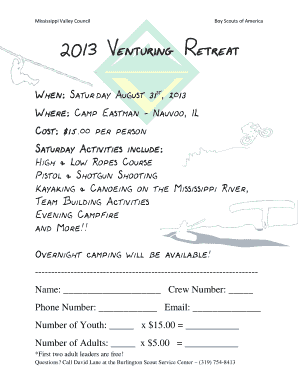 Mississippi Valley Council Boy Scouts of America
2013 Venturing Retreat
When: Saturday August 31st, 2013
Where: Camp Eastman - Nauvoo, IL
Cost: $15.00 per person
Saturday Activities include:
High & Low Ropes Course
Pistol & Shotgun Shooting
Kayaking & Canoeing on the Mississippi River,
Team Building Activities
Evening Campfire
and More!!
Overnight camping will be available!
Name: ____________________ Crew Number: _____
Phone Number: ____________ Email: ______________
Number of Youth: _____ x $15.00 = ___________
Number of Adults: _____ x $5.00 = ___________
*First two adult leaders are free!
Questions? Call David Lane at the Burlington Scout Service Center – (319) 754-8413